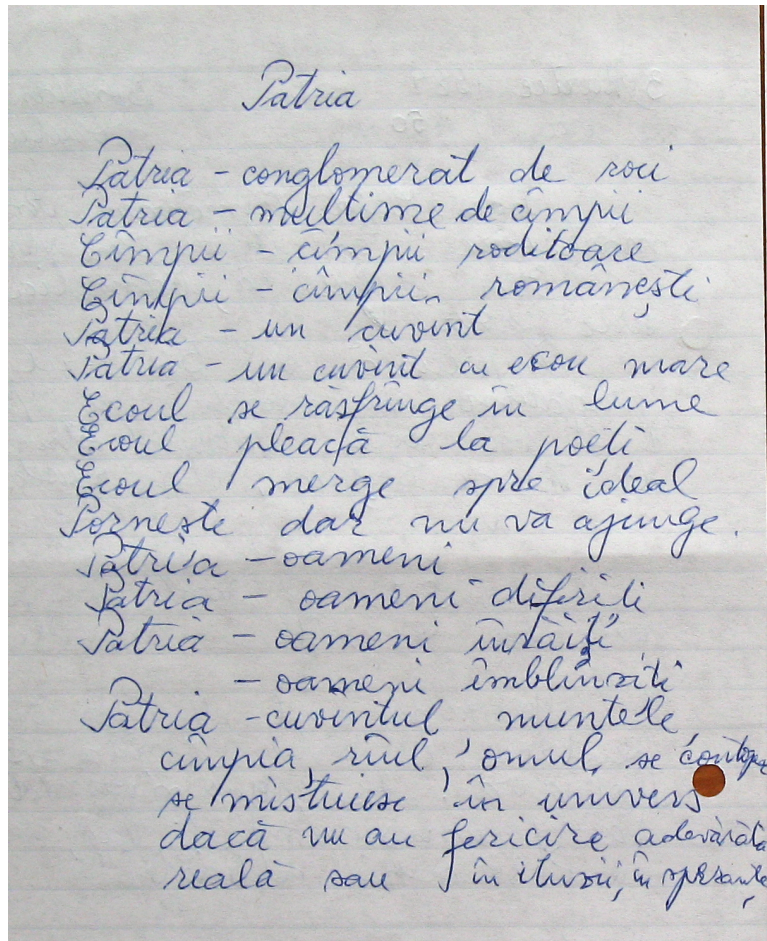 Patria
Patria - conglomerat de roci
Patria - mulțime de cîmpii
Cîmpii - cîmpii roditoare
Cîmpii - cîmpii românești
Patria - un cuvînt
Patria - un cuvînt cu ecou mare
Ecoul se răsfrînge în lume
Ecoul pleacă la poeți
Ecoul merge spre ideal
Pornește dar nu va ajunge.
Patria - oameni
Patria - oameni diferiți
Patria - oameni înrăiți
- oameni îmblînziți
Patria - cuvîntul muntele
cîmpia, rîul, omul, se contope
se mistuiesc în univers
dacă nu au fericire adevărată
reală sau în iluzii, în speranțe